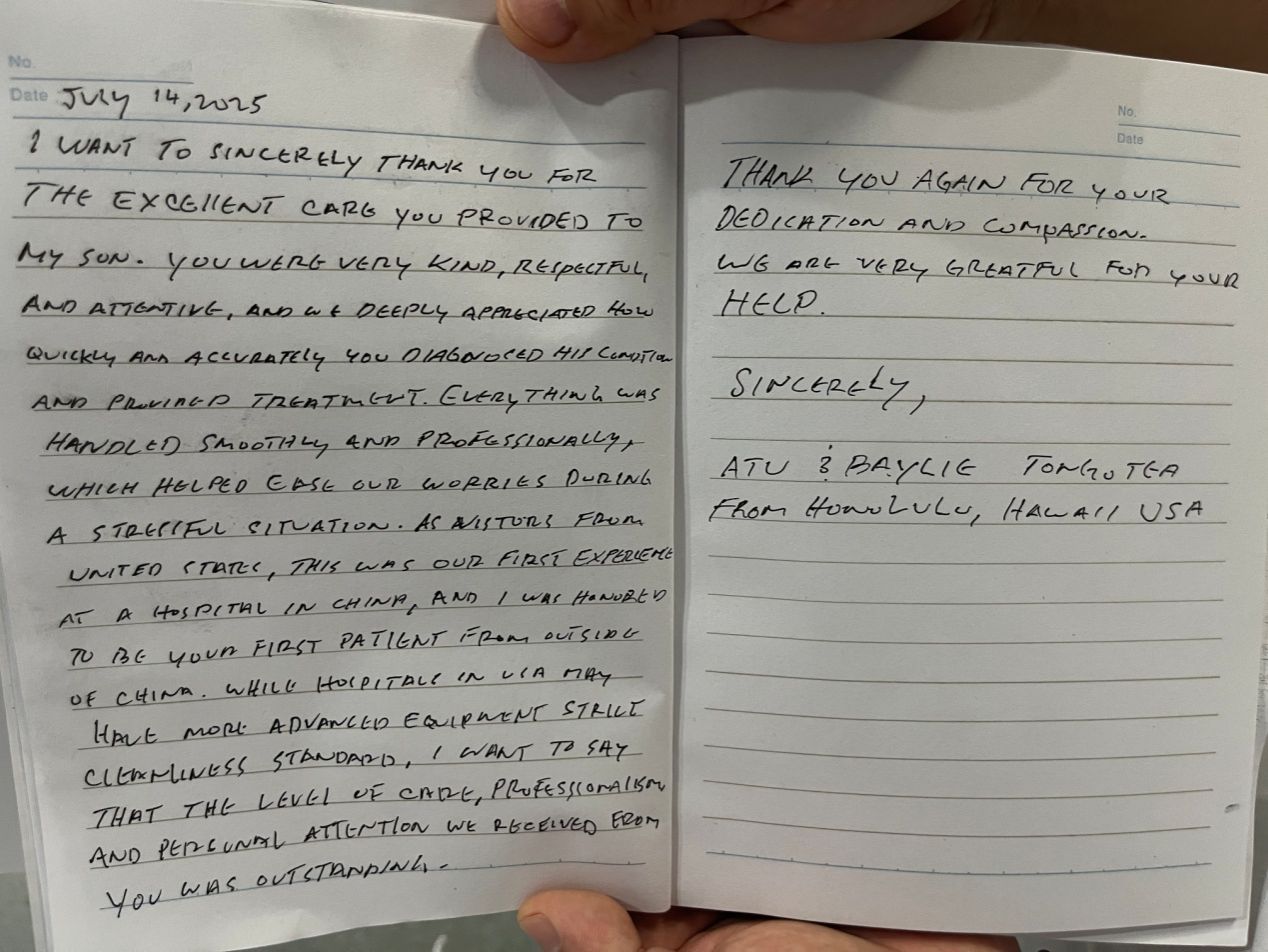 No.
Date JULY 14, 2025
I WANT TO SINCERELY THANK YOU FOR
THE EXCELLENT CARE YOU PROVIDED TO
MY SON. YOU WERE VERY KIND, RESPECTFUL,
AND ATTENTIVE, AND WE DEEPLY APPRECIATED HOW
QUICKLY AND ACCURATELY YOU DIAGNOCED HIS CONDITION
AND PROVIDED TREATMENT. EVERYTHING WAS
HANDLED SMOOTHLY AND PROFESSIONALLY,
WHICH HELPED EASE OUR WORRIES DURING
A STRESSFUL SITUATION. AS VISTORS FROM
UNITED STATES, THIS WAS OUR FIRST EXPERIENCE
AT A HOSPITAL IN CHINA, AND I WAS HONORED
TO BE YOUR FIRST PATIENT FROM OUTSIDE
OF CHINA. WHILE HOSPITALS IN USA MAY
HAVE MORE ADVANCED EQUIPMENT STRICT
CLEANLINESS STANDARD, I WANT TO SAY
THAT THE LEVEL OF CARE, PROFESSIONALISM
AND PERSONAL ATTENTION WE RECEIVED FROM
YOU WAS OUTSTANDING.
No.
Date
THANK YOU AGAIN FOR YOUR
DEDICATION AND COMPASSION.
WE ARE VERY GREATFUL FOR YOUR
HELP.
SINCERELY,
ATU & BAYLIE TONGOTEA
FROM HONOLULU, HAWAII USA